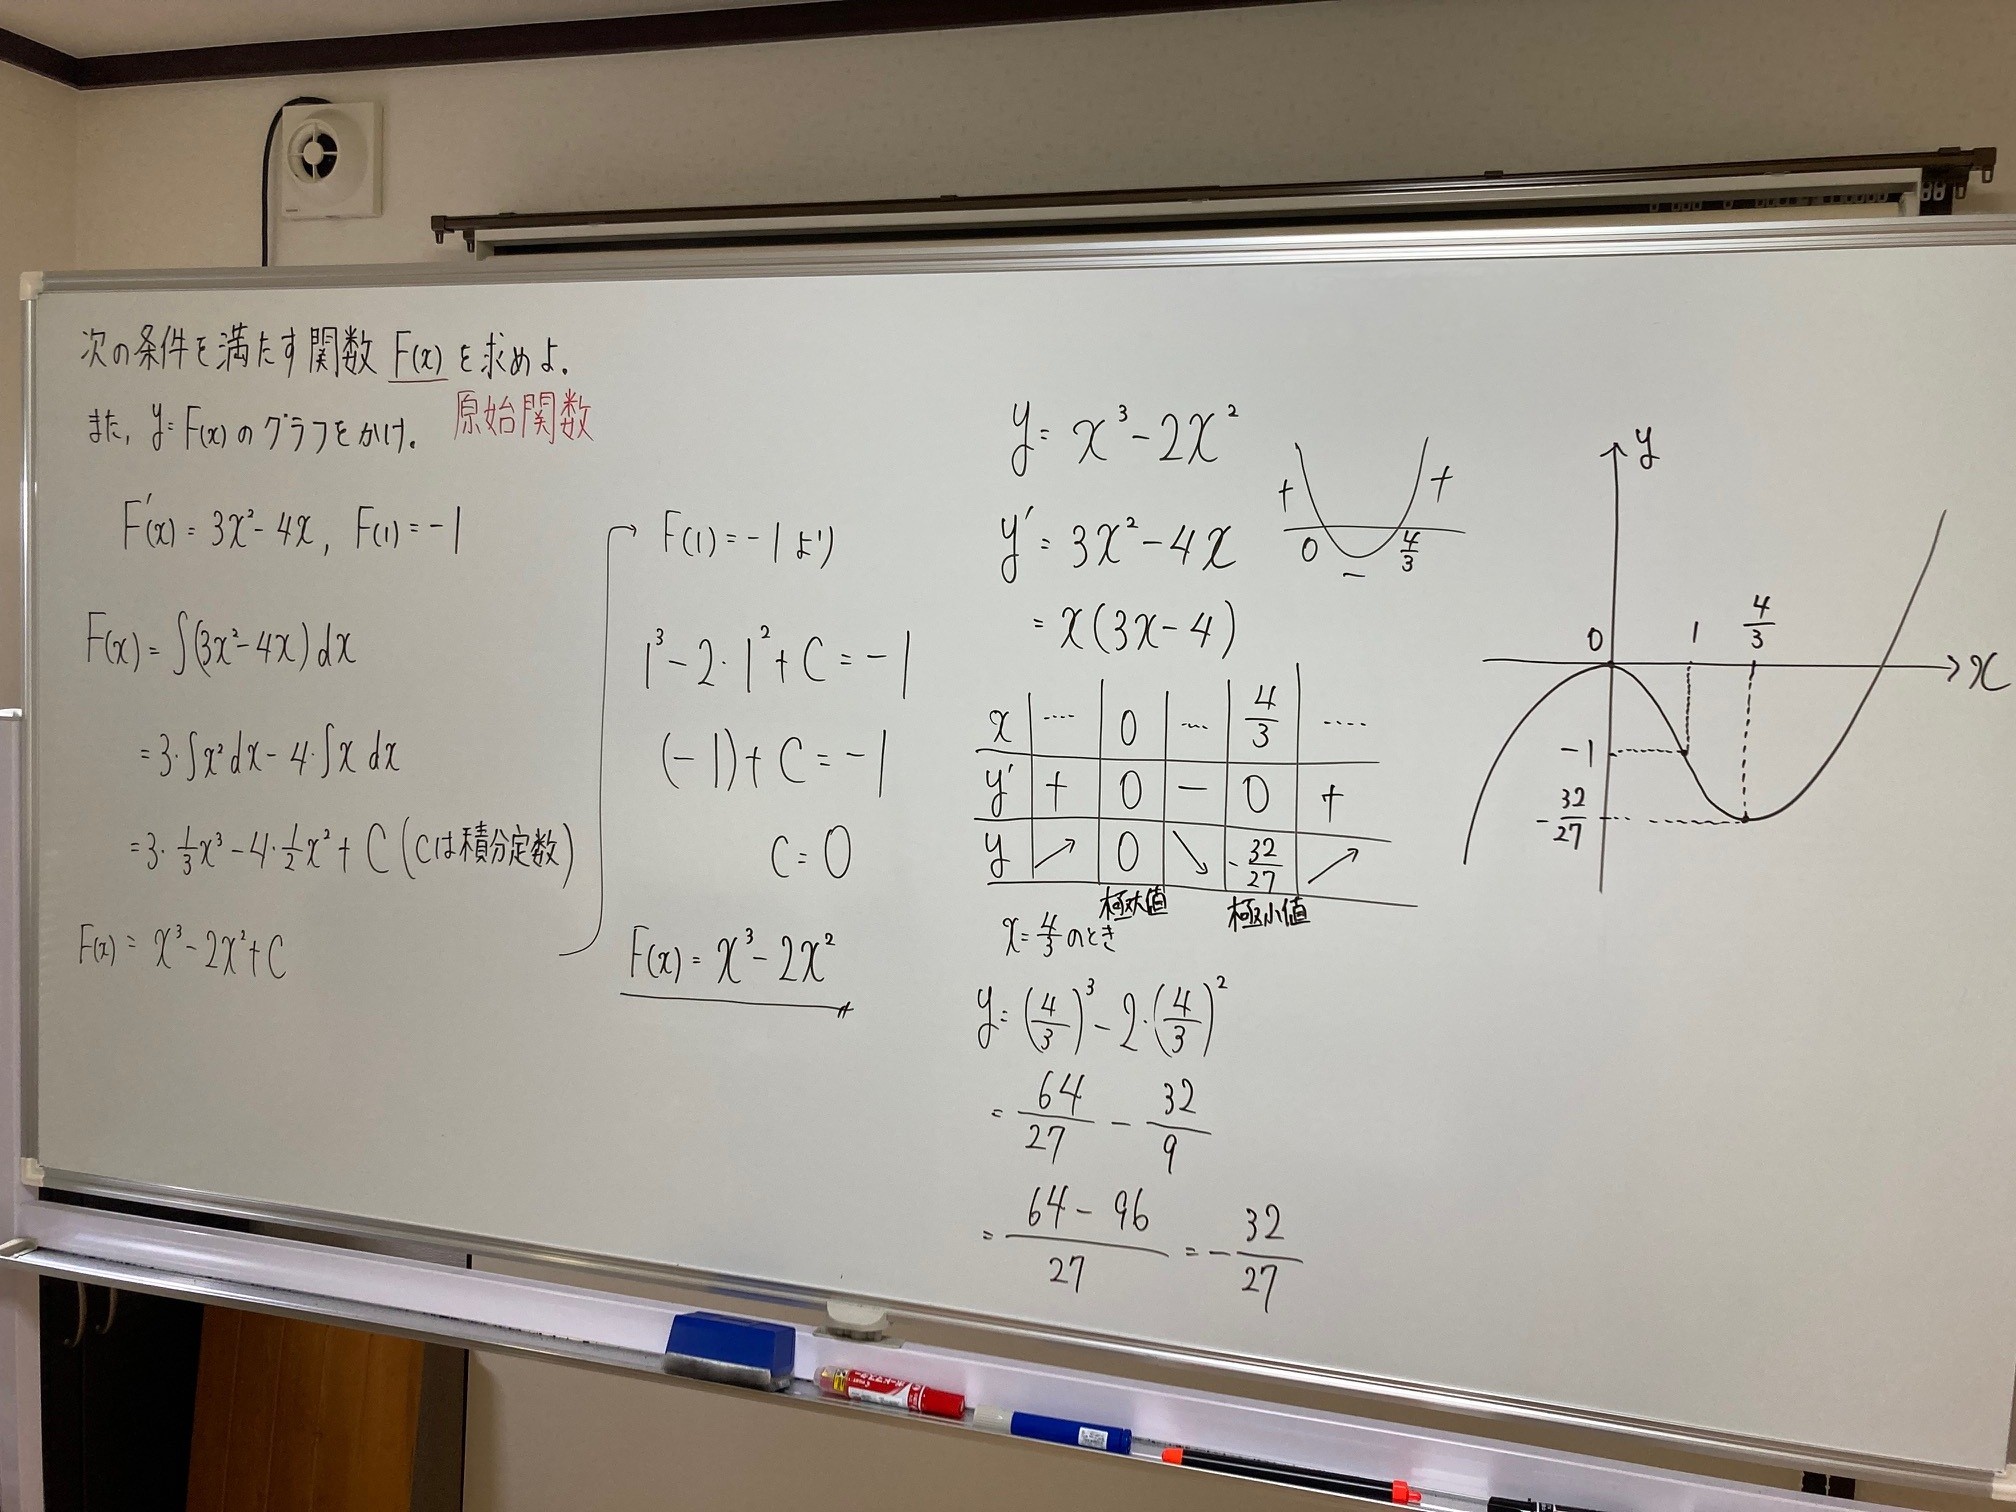 次の条件を満たす関数 F(x) を求めよ。
また, y=F(x)のグラフをかけ。
原始関数
F'(x) = 3x² - 4x, F(1) = -1
F(x) = ∫(3x² - 4x) dx
= 3·∫x² dx - 4·∫x dx
= 3·1/3 x³ - 4·1/2 x² + C (Cは積分定数)
F(x) = x³ - 2x² + C
F(1) = -1 より
1³ - 2·1² + C = -1
(-1) + C = -1
C = 0
F(x) = x³ - 2x²
y = x³ - 2x²
y' = 3x² - 4x
= x(3x - 4)
+ +
0 - 4/3
x ···· 0 ··· 4/3 ····
y' + 0 - 0 +
y ↗ 0 ↘ -32/27 ↗
極大値 極小値
x = 4/3 のとき
y = (4/3)³ - 2·(4/3)²
= 64/27 - 32/9
= (64 - 96)/27 = -32/27
y
0 1 4/3
x
-1
-32/27